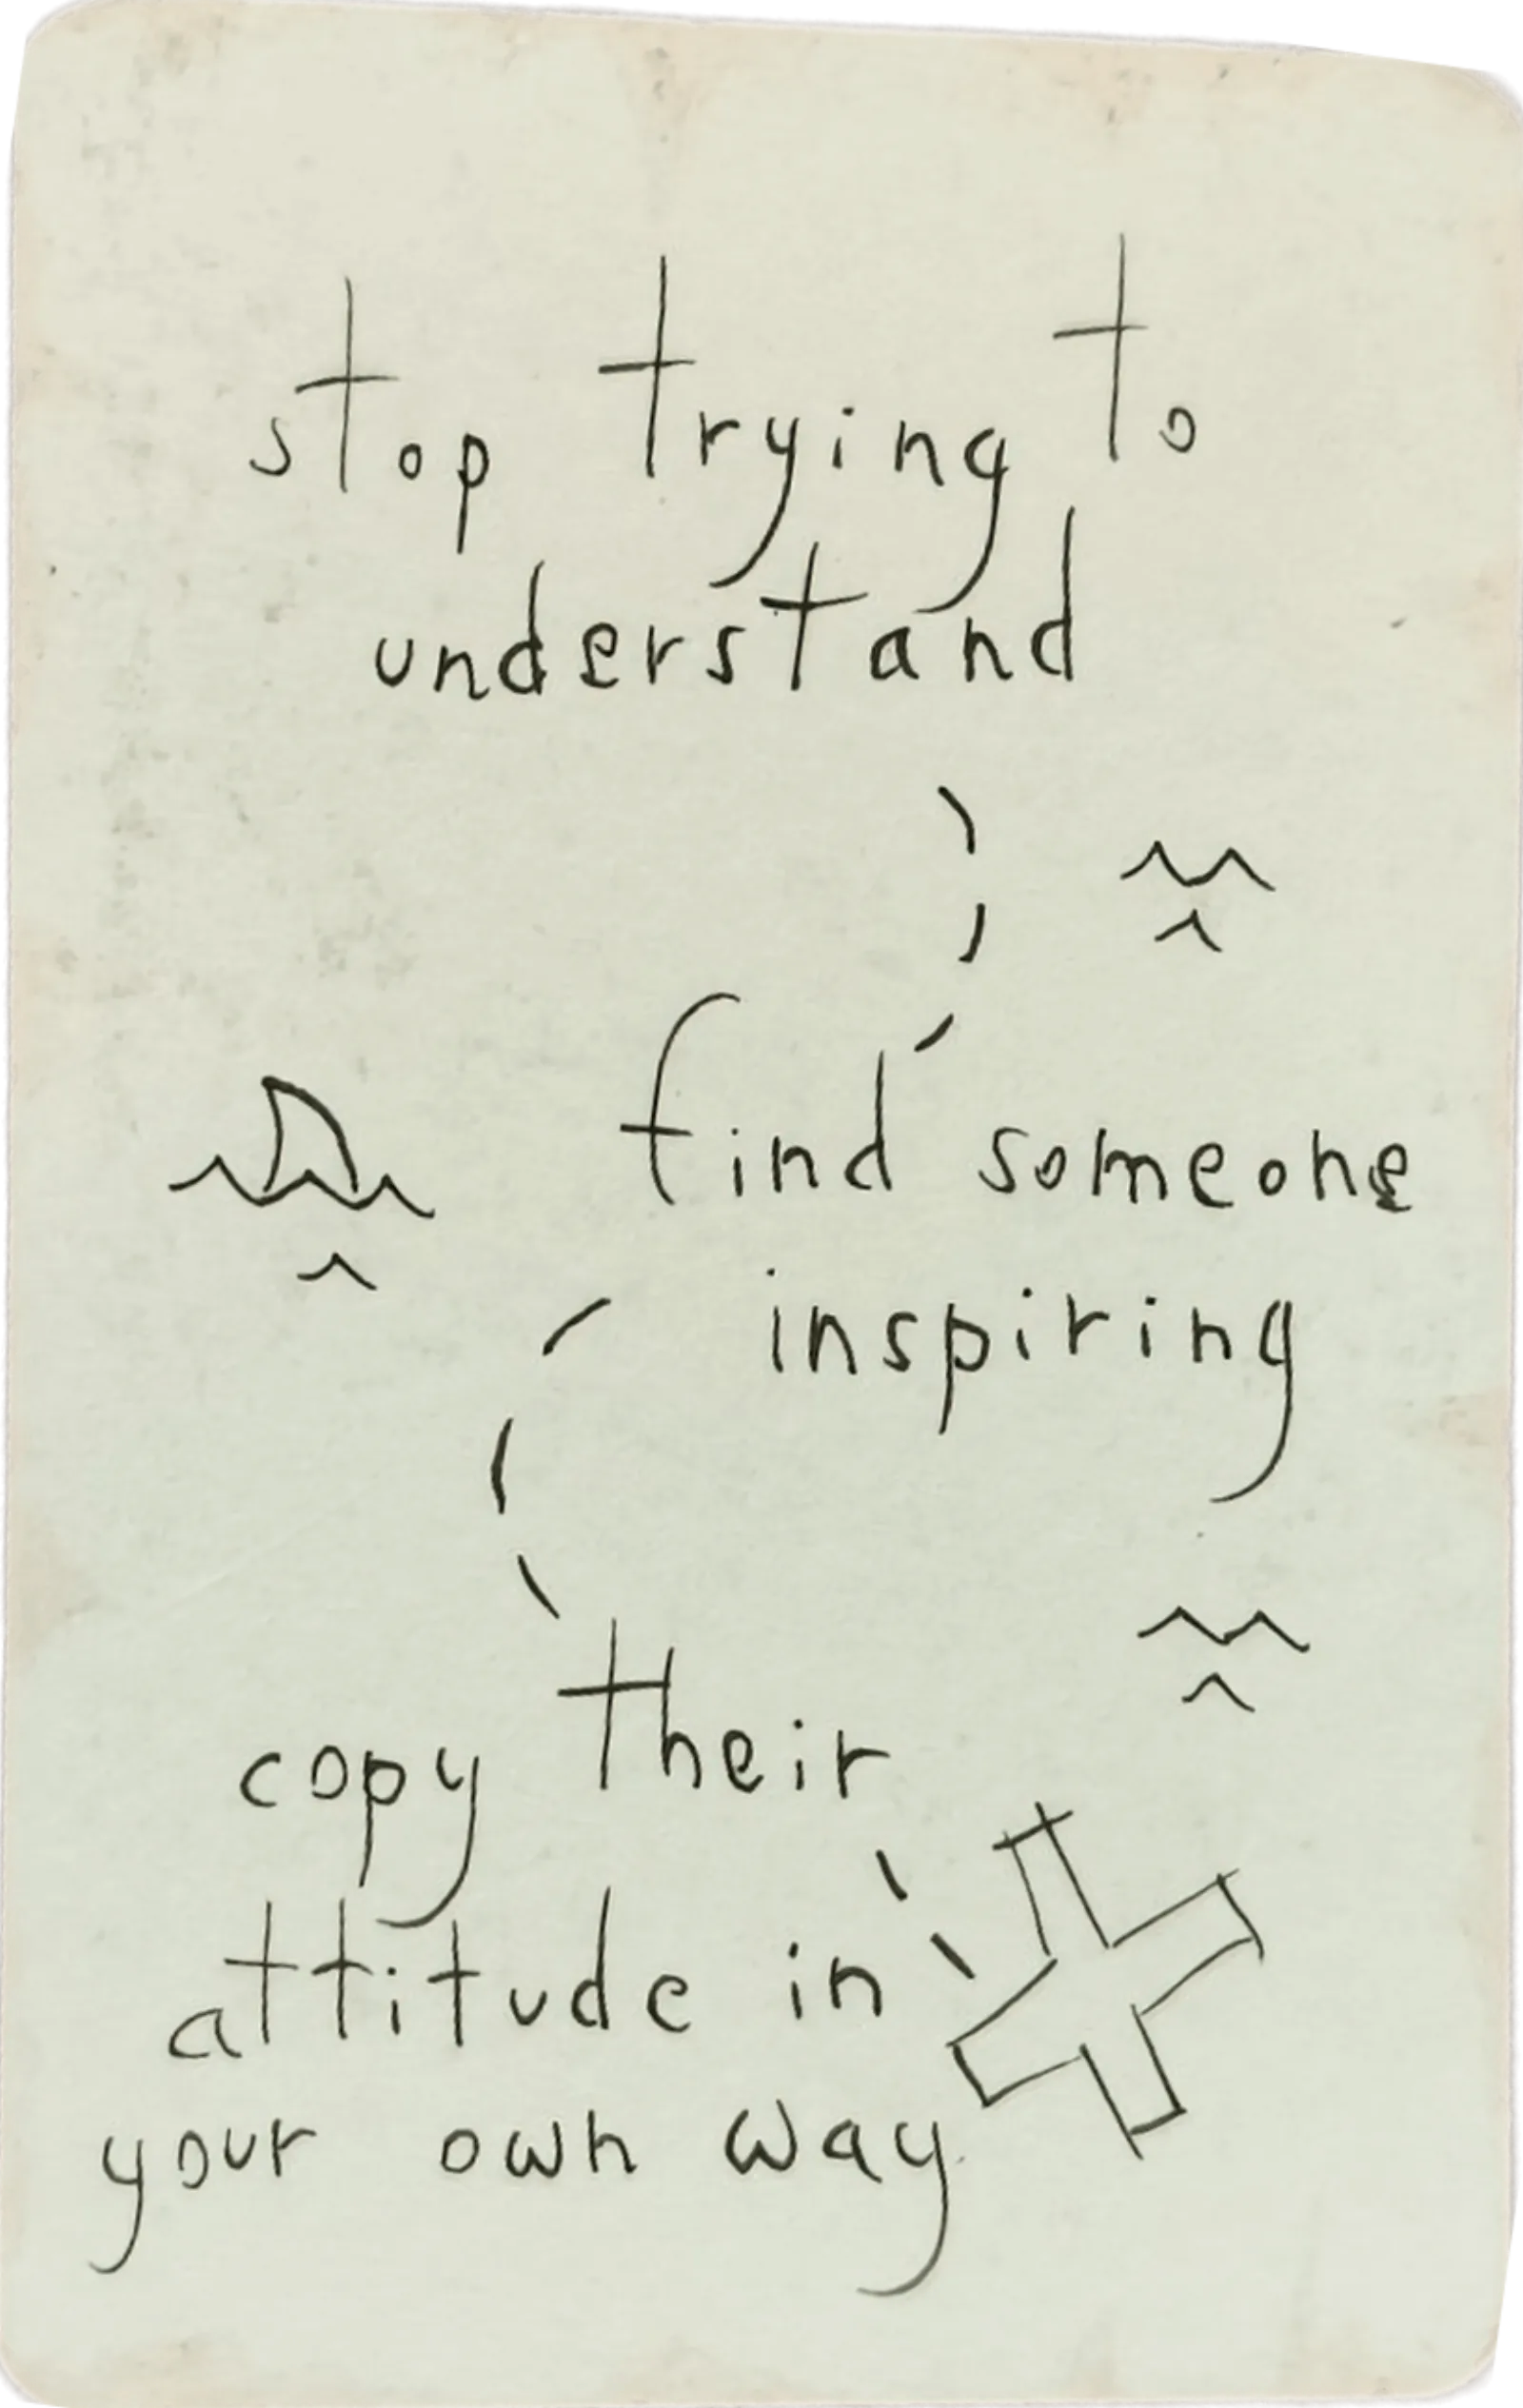 stop trying to
understand
find someone
inspiring
copy their
attitude in
your own way